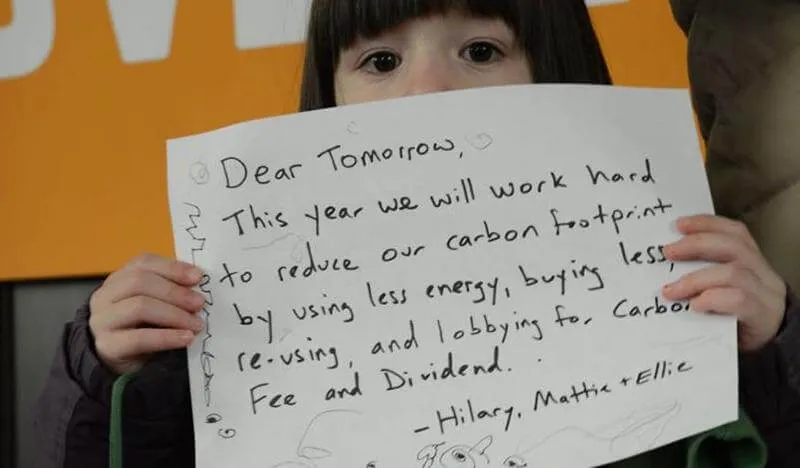 Dear Tomorrow,
This year we will work hard
to reduce our carbon footprint
by using less energy, buying less,
re-using, and lobbying for Carbon
Fee and Dividend.
-Hilary, Mattie + Ellie